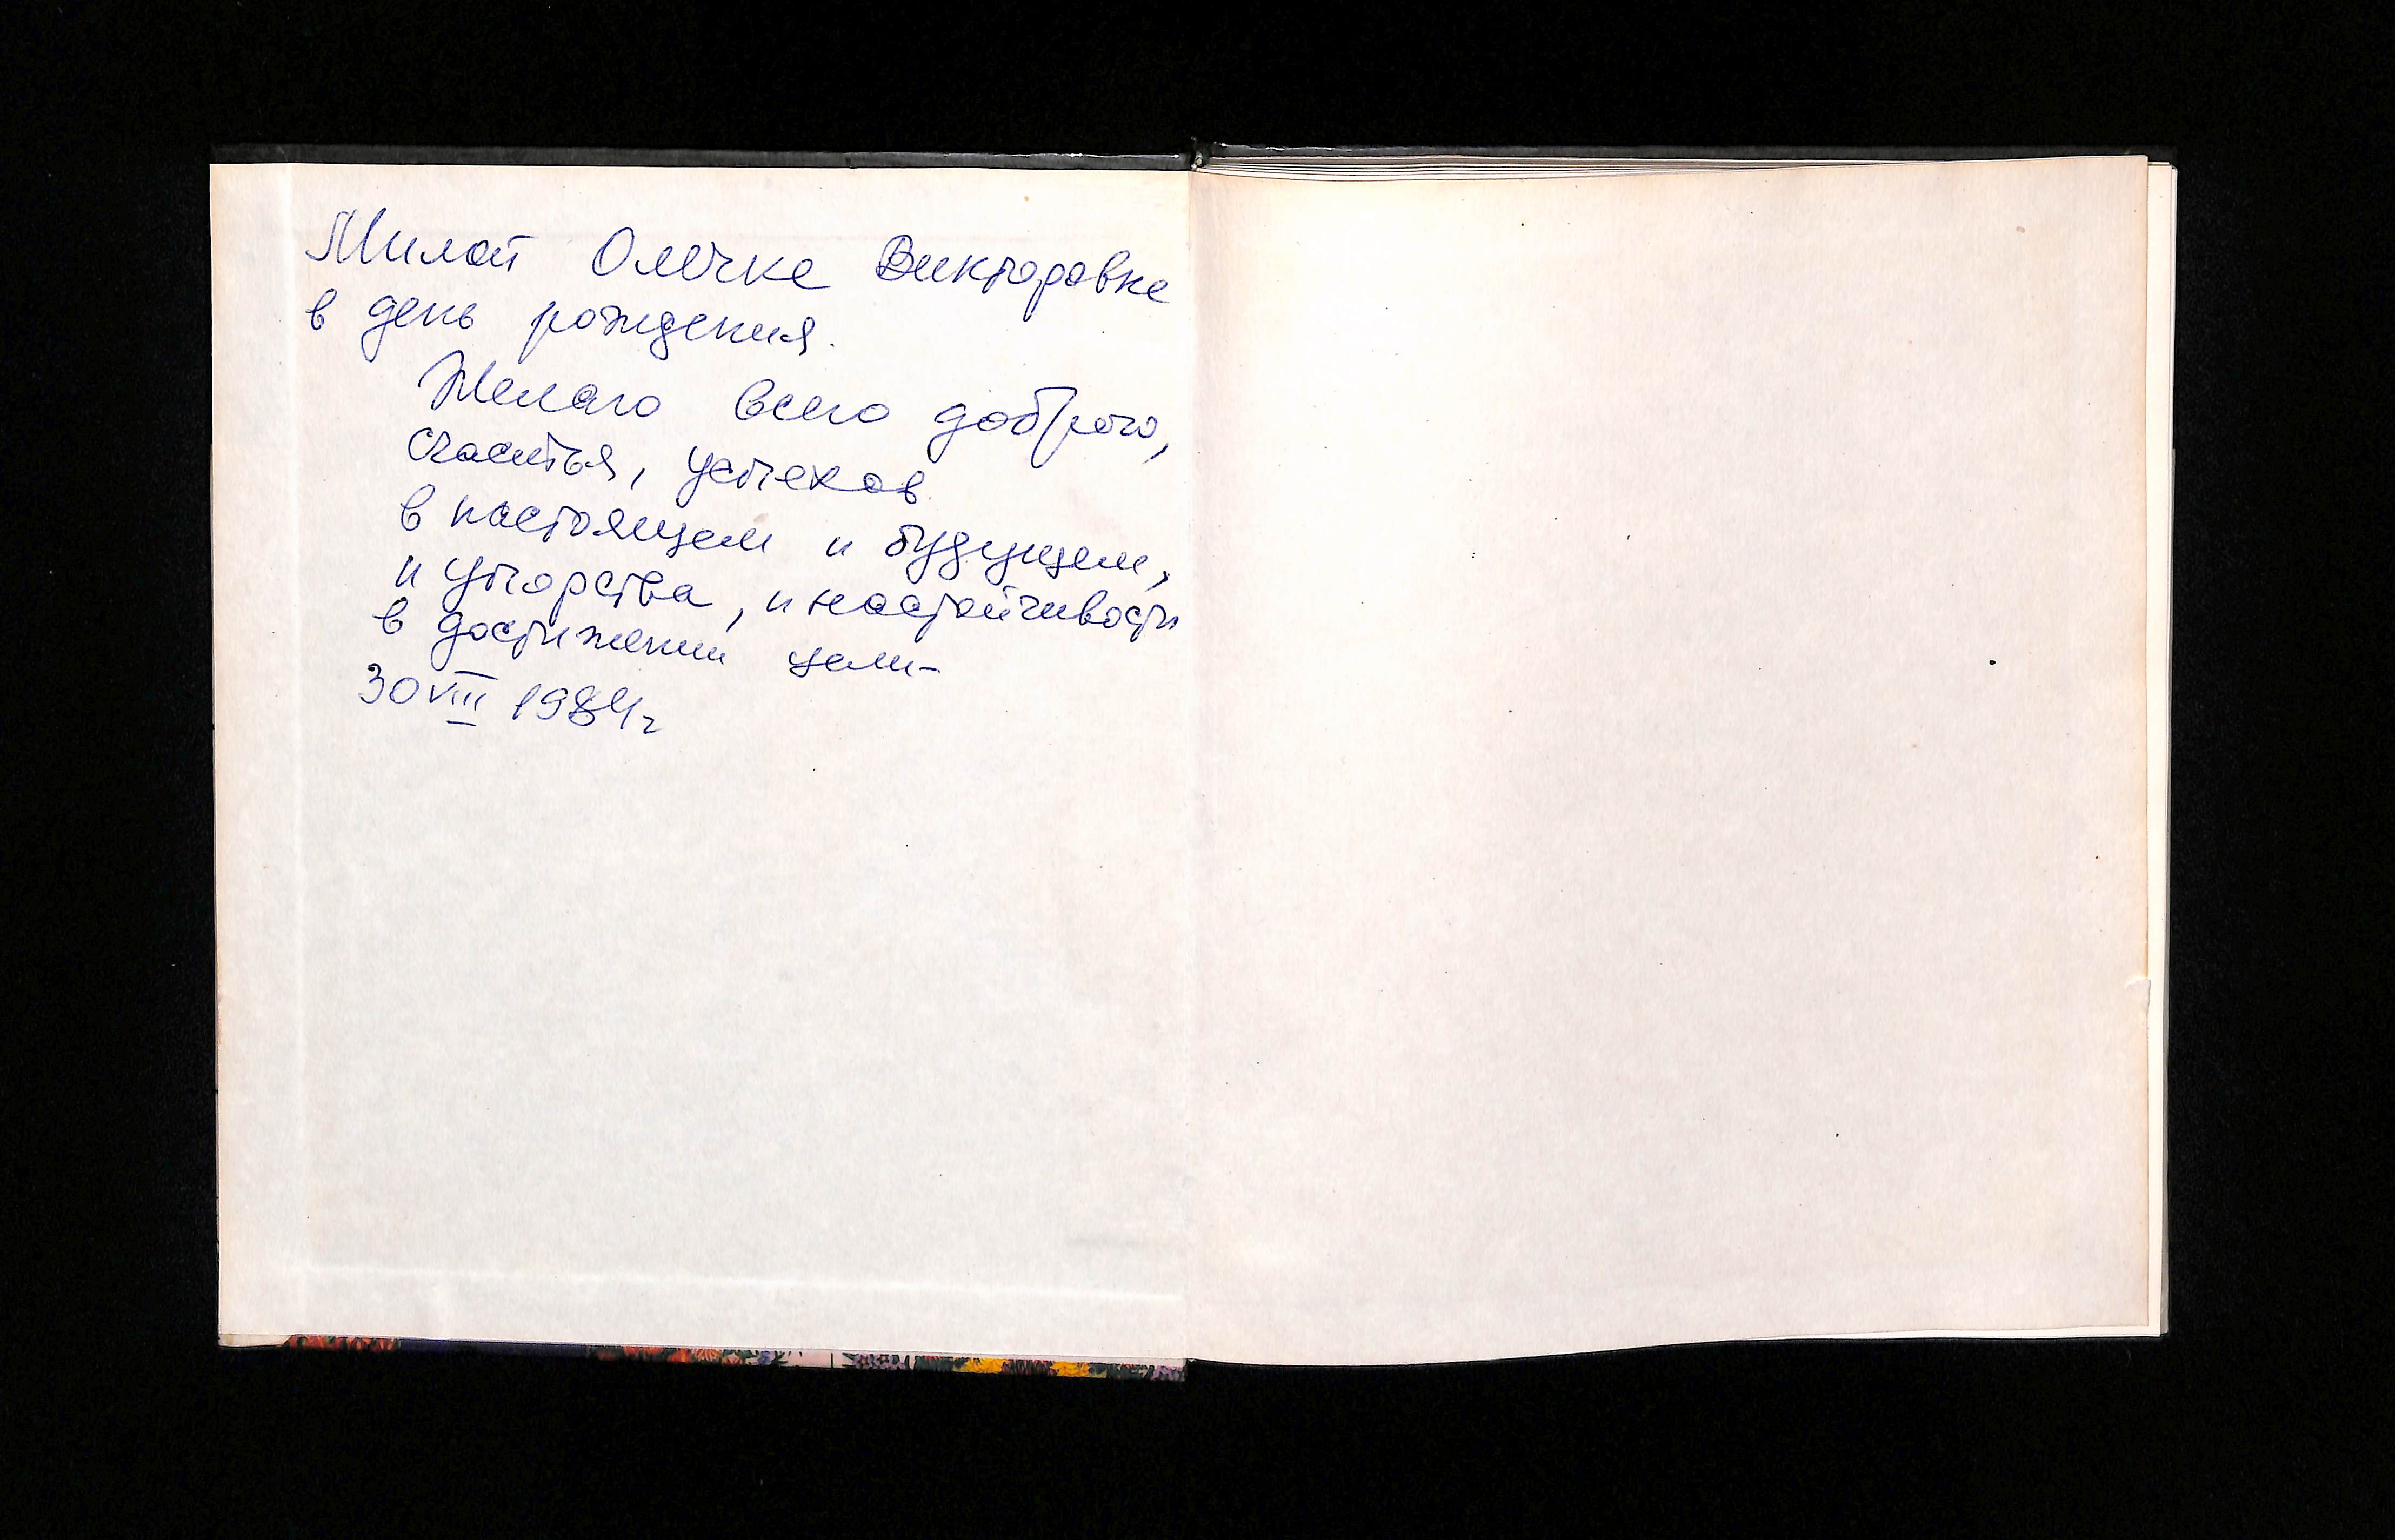 Милой Олечке Викторовне
в день рождения.
Желаю всего доброго,
счастья, успехов
в настоящем и будущем,
и упорства, и настойчивости
в достижении цели-
30 VIII 1984г